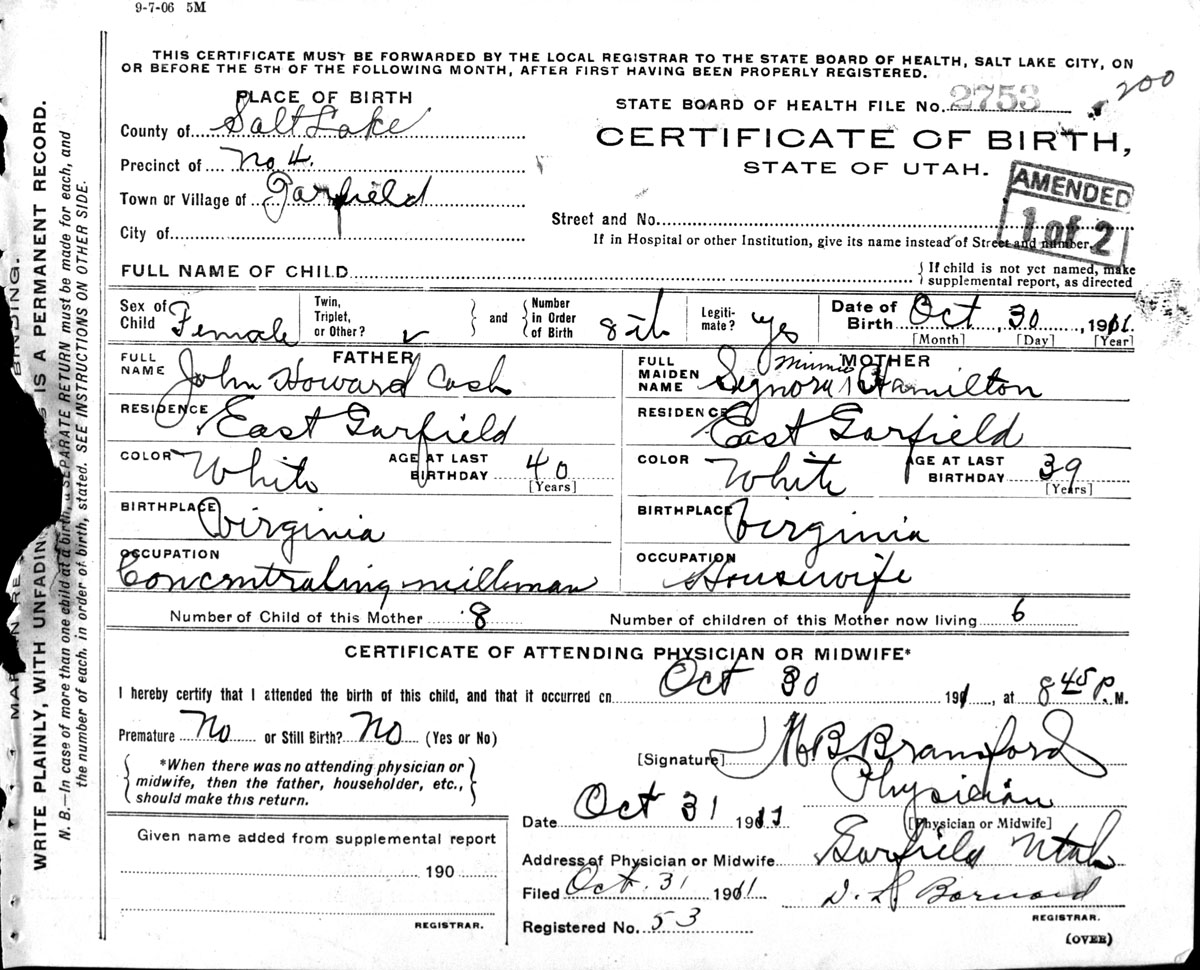 9-7-06 5M
THIS CERTIFICATE MUST BE FORWARDED BY THE LOCAL REGISTRAR TO THE STATE BOARD OF HEALTH, SALT LAKE CITY, ON
OR BEFORE THE 5TH OF THE FOLLOWING MONTH, AFTER FIRST HAVING BEEN PROPERLY REGISTERED.
200
PLACE OF BIRTH
STATE BOARD OF HEALTH FILE No. 2753
County of Salt Lake
CERTIFICATE OF BIRTH,
Precinct of No 4.
STATE OF UTAH.
AMENDED
1 of 2
Town or Village of Garfield
Street and No.
City of
If in Hospital or other Institution, give its name instead of Street and number.
FULL NAME OF CHILD
{ If child is not yet named, make
supplemental report, as directed
Sex of Child Female
Twin, Triplet, or Other?
} and { Number in Order of Birth 8th
Legiti- mate? yes
Date of Birth Oct, 30, 1911.
[Month] [Day] [Year]
FATHER
FULL NAME John Howard Cash
RESIDENCE East Garfield
COLOR White
AGE AT LAST BIRTHDAY 40
[Years]
BIRTHPLACE Virginia
OCCUPATION Concentrating millman
MOTHER
FULL MAIDEN NAME Signora Minnie Hamilton
RESIDENCE East Garfield
COLOR White
AGE AT LAST BIRTHDAY 39
[Years]
BIRTHPLACE Virginia
OCCUPATION Housewife
Number of Child of this Mother 8
Number of children of this Mother now living 6
CERTIFICATE OF ATTENDING PHYSICIAN OR MIDWIFE*
I hereby certify that I attended the birth of this child, and that it occurred on Oct 30 191, at 8 45 P. M.
Premature No or Still Birth? No (Yes or No)
{ *When there was no attending physician or }
midwife, then the father, householder, etc.,
should make this return.
[Signature] Bransford
Physician
[Physician or Midwife]
Date Oct 31 1911
Address of Physician or Midwife Garfield Utah
Filed Oct. 31 1911
D. L. Barnard
REGISTRAR.
Registered No. 53
(OVER)
Given name added from supplemental report
190
REGISTRAR.
BINDING.
WRITE PLAINLY, WITH UNFADING IS A PERMANENT RECORD.
N. B.—In case of more than one child at a birth, a SEPARATE RETURN must be made for each, and
the number of each. in order of birth, stated. SEE INSTRUCTIONS ON OTHER SIDE.